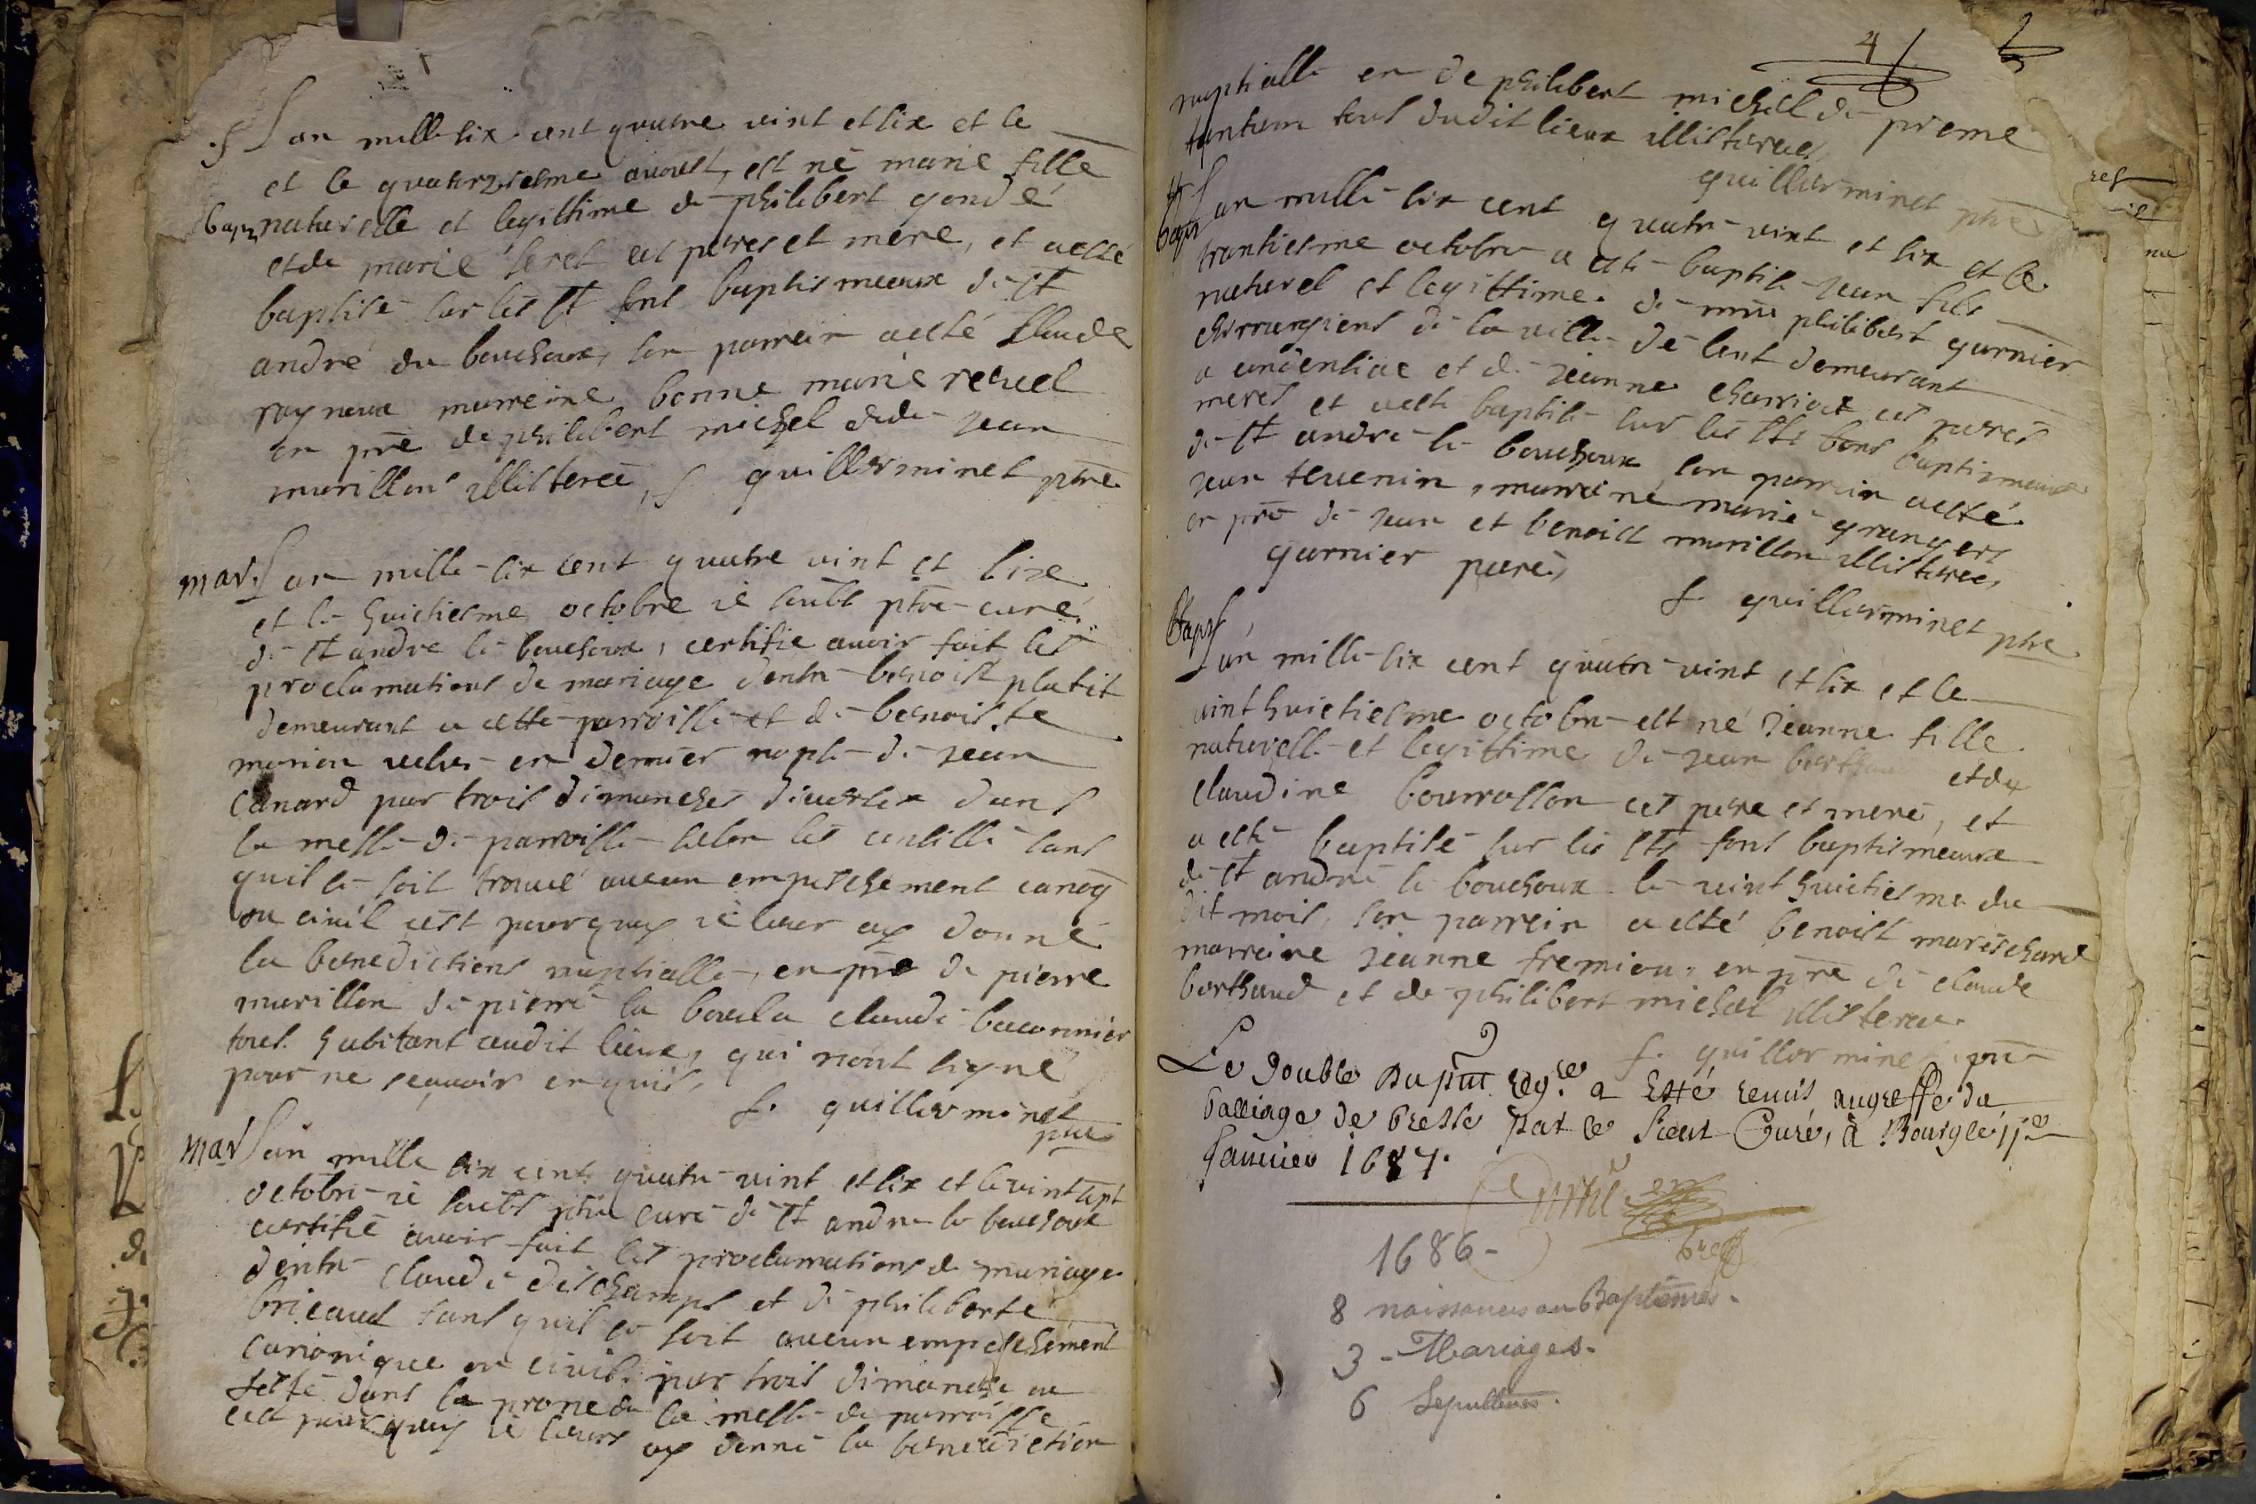 L'an mille six cent quatre vint et six et le
et le quatorziesme aoust, est né marie fille
bap naturelle et legittime de philibert gondé
et de marie seret ces peres et mere, et a esté
baptisé sur les st fons baptismeaux de st
andré du bouchoux, son parrein a esté Claude
raynaux marreine bonne marie reuel
en pre de philibert michel et de jean
murillon illisteree, f guillerminet ptre
mar. L'an mille six cent quatre vint et sixe
et le huictiesme octobre ie soubs ptre curé
de st andre le bouchoux, certifie auoir fait les
proclamations de mariage dentre benoist platit
demeurant a cette parroisse et de benoiste
morion vefve en dernier nopse de jean
Canard par trois dimanches diverses dans
la messe de parroisse selon les conseille sans
quil se soit trouué aucun empeschement canoq
ou ciuil cest pourquoy ie leur ay donné
la benedictions nuptialle, en pre de pierre
murillon de pierre la boula claude baconnier
tous habitant audit lieux, qui nont signé
pour ne scauoir enquis, f. guillerminet
ptre
mar L'an mille six cent quatre vint et six et le vint sept
octobre ie soubs ptre curé de st andre le bouchoux
certifie auoir fait les proclamations de mariage
dentre Claude deschamps et de philiberte
bricaud sans quil se soit aucun empeschement
canonique ou ciuil par trois dimanche ou
feste dans la prone de la messe de parroisse
cest pourquoy ie leurs ay donné la benediction
4
nuptialle en de philibert michel de preme
tantum tous dudit lieux illisteree
guillerminet ptre
bap L'an mille six cent quatre vint et six et le
trantiesme octobre a esté baptisé jean fils
naturel et legittime de mre philibert garnier
chirurgiens de la ville de lent demeurant
a condentiae et de jeanne charriot ces peres
meres et a esté baptisé sur les sts fons baptismeaux
de st andre le bouchoux son parrein a esté
jean tevenin, marreine marie grangers
en pre de jean et benoist murillon illisteree,
garnier pere,
f. guillerminet ptre
Bap
L'an mille six cent quatre vint et six et le
vint huictiesme octobre est né Jeanne fille
naturelle et legittime de jean berthaud et de
claudine bourrosson ces pere et mere, et
a esté baptisé sur les sts fons baptismeaux
de st andre le bouchoux le vint huictiesme du
dit mois, son parrein a esté benoist mareschard
marreine jeanne fremion, en pre de claude
berthaud et de philibert michel illisteree.
f. guillerminet ptre
Le double du pnt reg.re a esté remis au greffe du
balliage de bresse par le sieur Curé, a Bourg le 11e
Januier 1687.
1686 -
8 naissances ou Baptêmes -
3 - Mariages -
6 Sepultures.